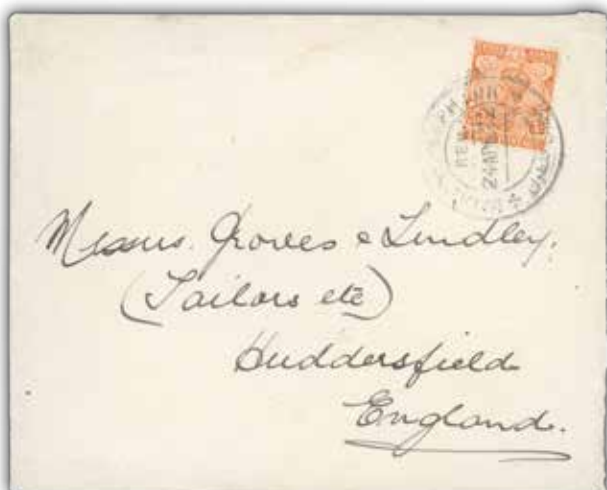 24 AP
Messrs. Groves & Lindley.
(Tailors etc)
Huddersfield
England.